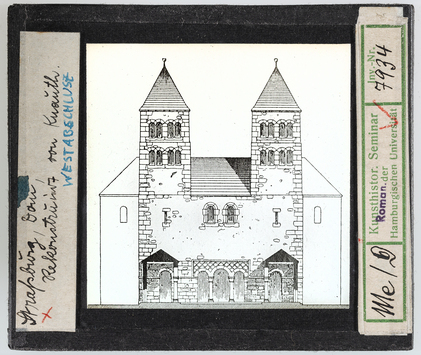 Straßburg, Dom
Rekonstruktion von Knauth.
WESTABSCHLUSZ
Kunsthistor. Seminar
Roman. der
Hamburgischen Universität
Inv.-Nr.
7934
Me/D